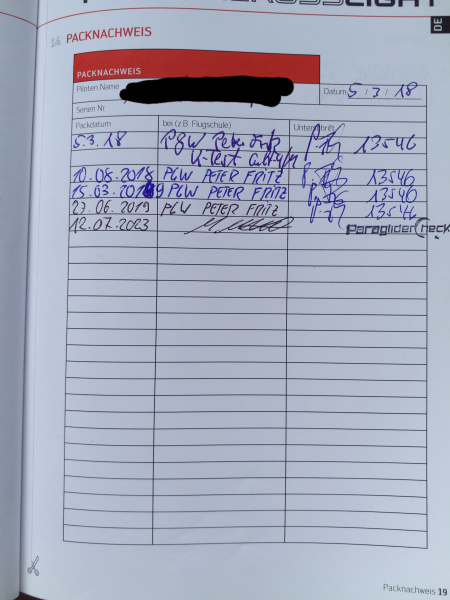 DE
14 PACKNACHWEIS
PACKNACHWEIS
Piloten Name
Datum 5 / 3 / 18
Serien Nr.
Packdatum bei (z.B. Flugschule) Unterschrift
5.3.18 PGW Peter Fritz 13546
K-Test
10.08.2018 PGW PETER FRITZ 13546
15.03.2019 PGW PETER FRITZ 13546
27.06.2019 PGW PETER FRITZ 13546
12.07.2023 ParagliderCheck
Packnachweis 19